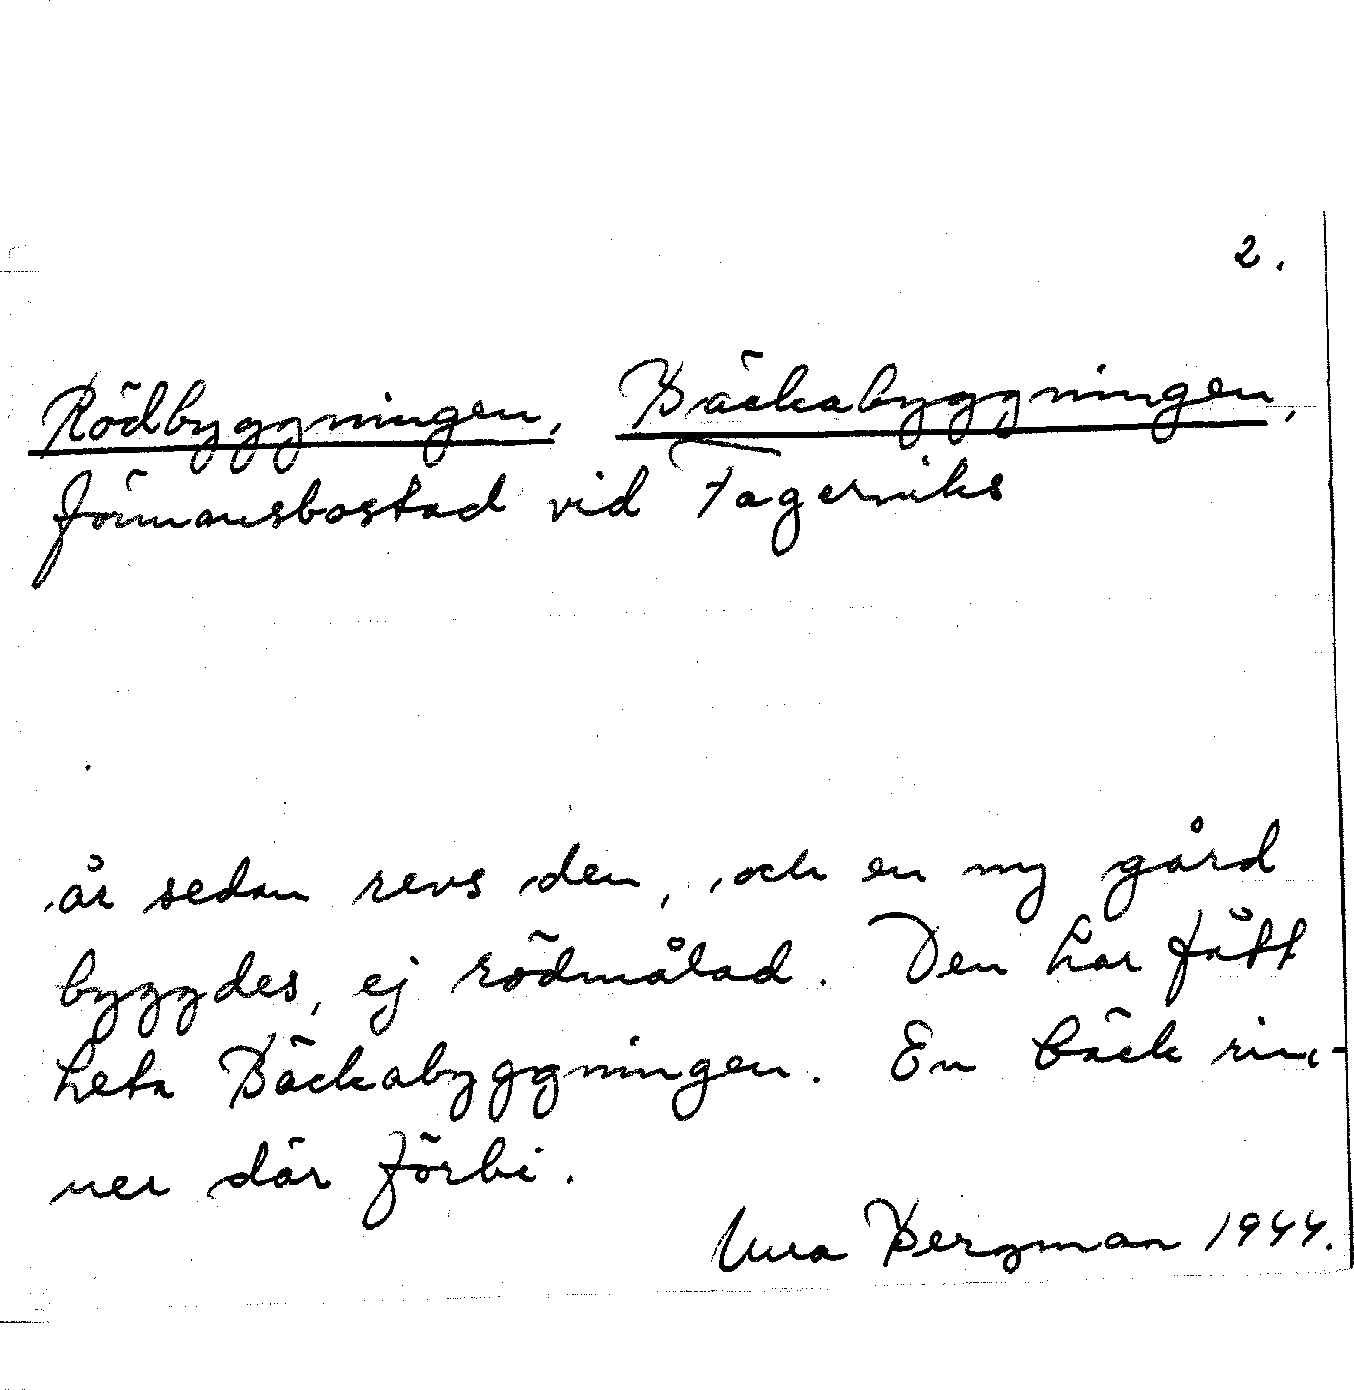 2.
Rödbyggningen, Bäckabyggningen,
förmansbostad vid Fagerviks
år sedan revs den, och en ny gård
byggdes, ej rödmålad. Den har fått
heta Bäckabyggningen. En bäck rin-
ner där förbi.
Bergman 1944.